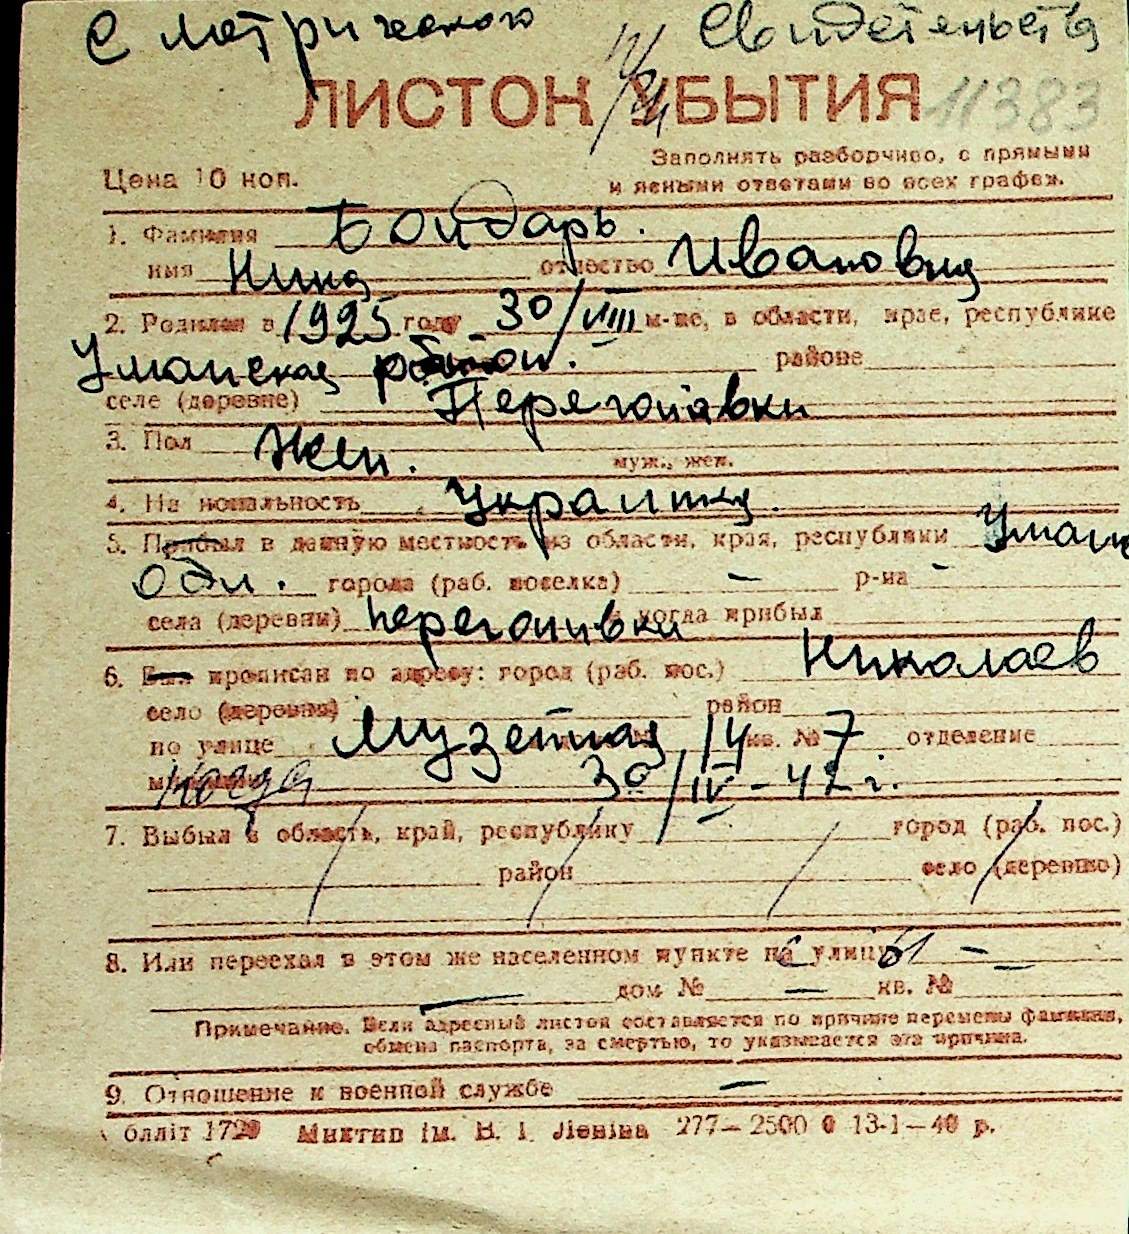 С метрического Свидетельства
ЛИСТОК УБЫТИЯ 11383
Заполнять разборчиво, с прямыми
Цена 10 коп. и ясными ответами во всех графах.
1. Фамилия Бондарь.
имя Нина отчество Ивановна
2. Родился в 1925 году 30/VIII м-це, в области, крае, республике
Уманская районе
селе (деревне) Перегоновки
3. Пол Жен. муж., жен.
4. Национальность Украинка.
5. Прибыл в данную местность из области, края, республики Уман
обл. города (раб. поселка) – р-на -
села (деревни) Перегоновки и когда прибыл
6. Был прописан по адресу: город (раб. пос.) Николаев
село (деревня) район
по улице Музейная 14 кв. № 7 отделение
милиции 30/IV-42 г.
7. Выбыл в область, край, республику город (раб. пос.)
район село (деревню)
8. Или переехал в этом же населенном пункте на улицу –
дом № – кв. №
Примечание. Если адресный листок составляется по причине перемены фамилии,
обмена паспорта, за смертью, то указывается эта причина.
9. Отношение к военной службе –
блліт 1720 Миктип ім. В. І. Леніна 277—2500 0 13-1—40 р.